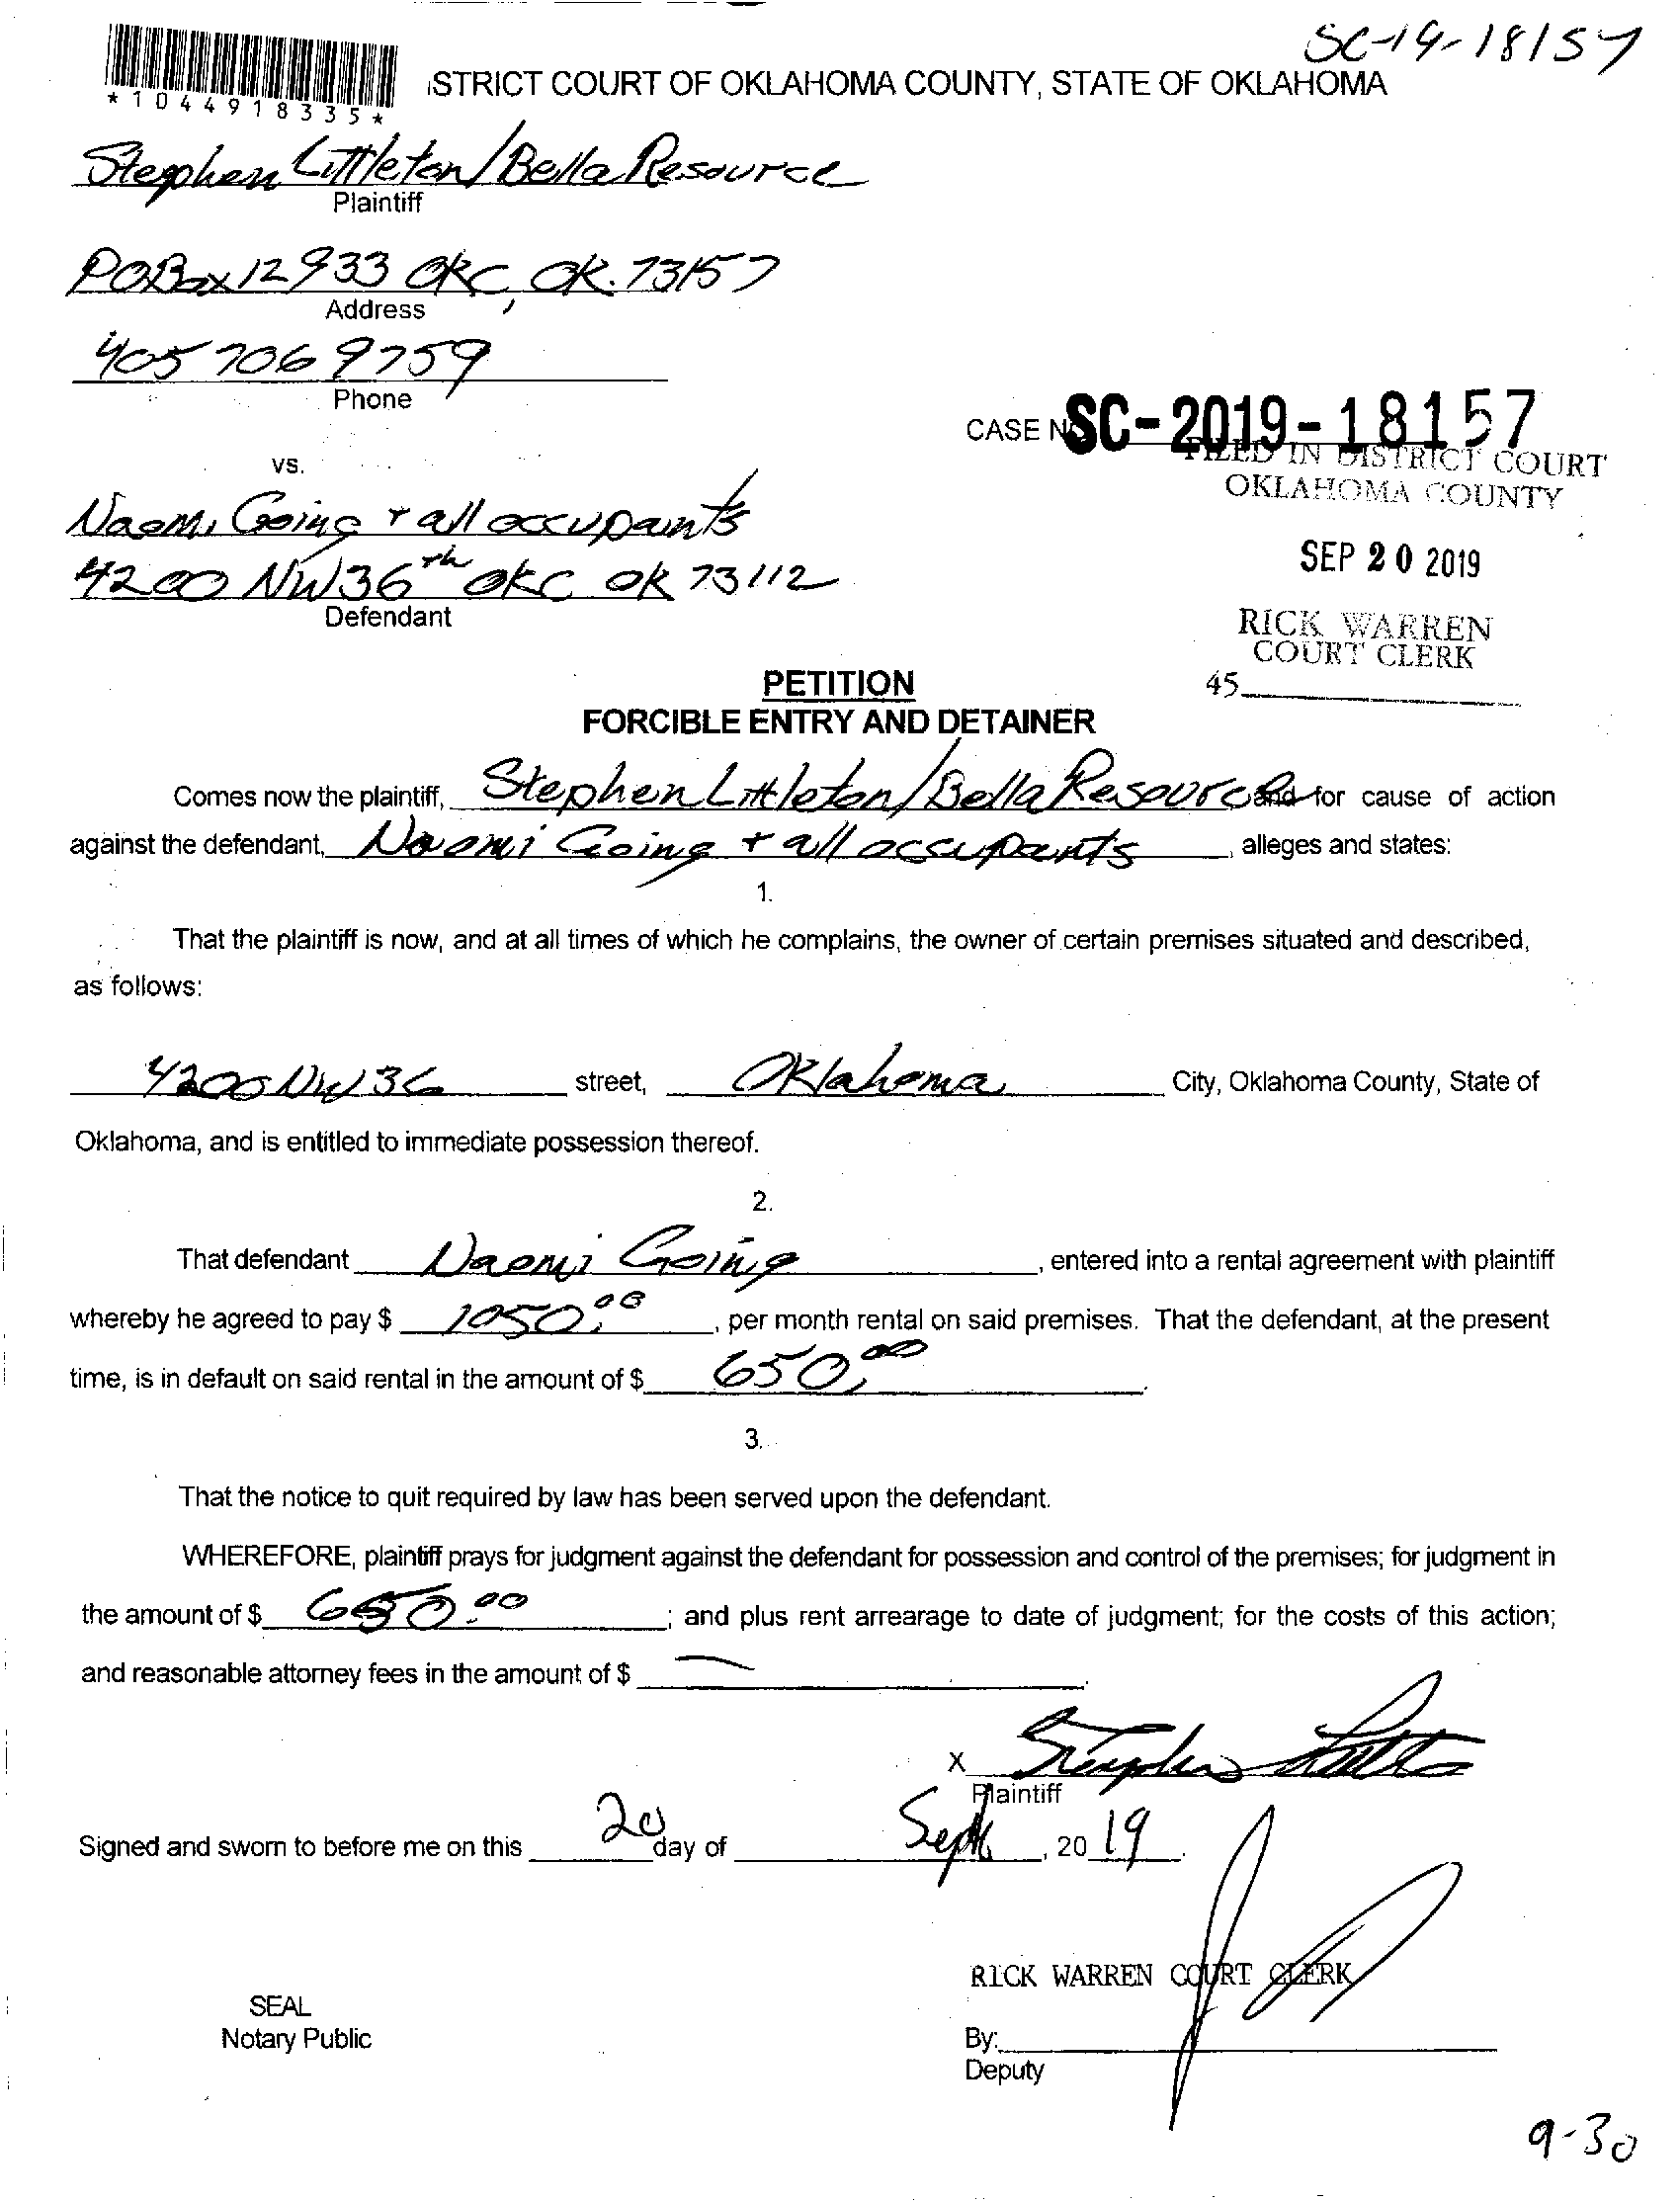 SC-19-18157
*1044918335*
STRICT COURT OF OKLAHOMA COUNTY, STATE OF OKLAHOMA
Stephen Littleton/Bella Resource
Plaintiff
PO Box 12933 OKC, OK. 73157
Address
405 706 9759
Phone
CASE NO SC-2019-18157
FILED IN DISTRICT COURT
OKLAHOMA COUNTY
vs.
Naomi Going + all occupants
4200 NW 36th OKC OK 73112
Defendant
SEP 20 2019
RICK WARREN
COURT CLERK
45
PETITION
FORCIBLE ENTRY AND DETAINER
Comes now the plaintiff, Stephen Littleton/Bella Resource and for cause of action
against the defendant, Naomi Going + all occupants, alleges and states:
1.
That the plaintiff is now, and at all times of which he complains, the owner of certain premises situated and described,
as follows:
4200 NW 36 street, Oklahoma City, Oklahoma County, State of
Oklahoma, and is entitled to immediate possession thereof.
2.
That defendant Naomi Going, entered into a rental agreement with plaintiff
whereby he agreed to pay $ 1050.00, per month rental on said premises. That the defendant, at the present
time, is in default on said rental in the amount of $ 650.00.
3.
That the notice to quit required by law has been served upon the defendant.
WHEREFORE, plaintiff prays for judgment against the defendant for possession and control of the premises; for judgment in
the amount of $ 650.00; and plus rent arrearage to date of judgment; for the costs of this action;
and reasonable attorney fees in the amount of $ —.
X Stephen Littleton
Plaintiff
Signed and sworn to before me on this 20 day of Sept, 2019.
RICK WARREN COURT CLERK
SEAL
Notary Public
By:
Deputy
9-30